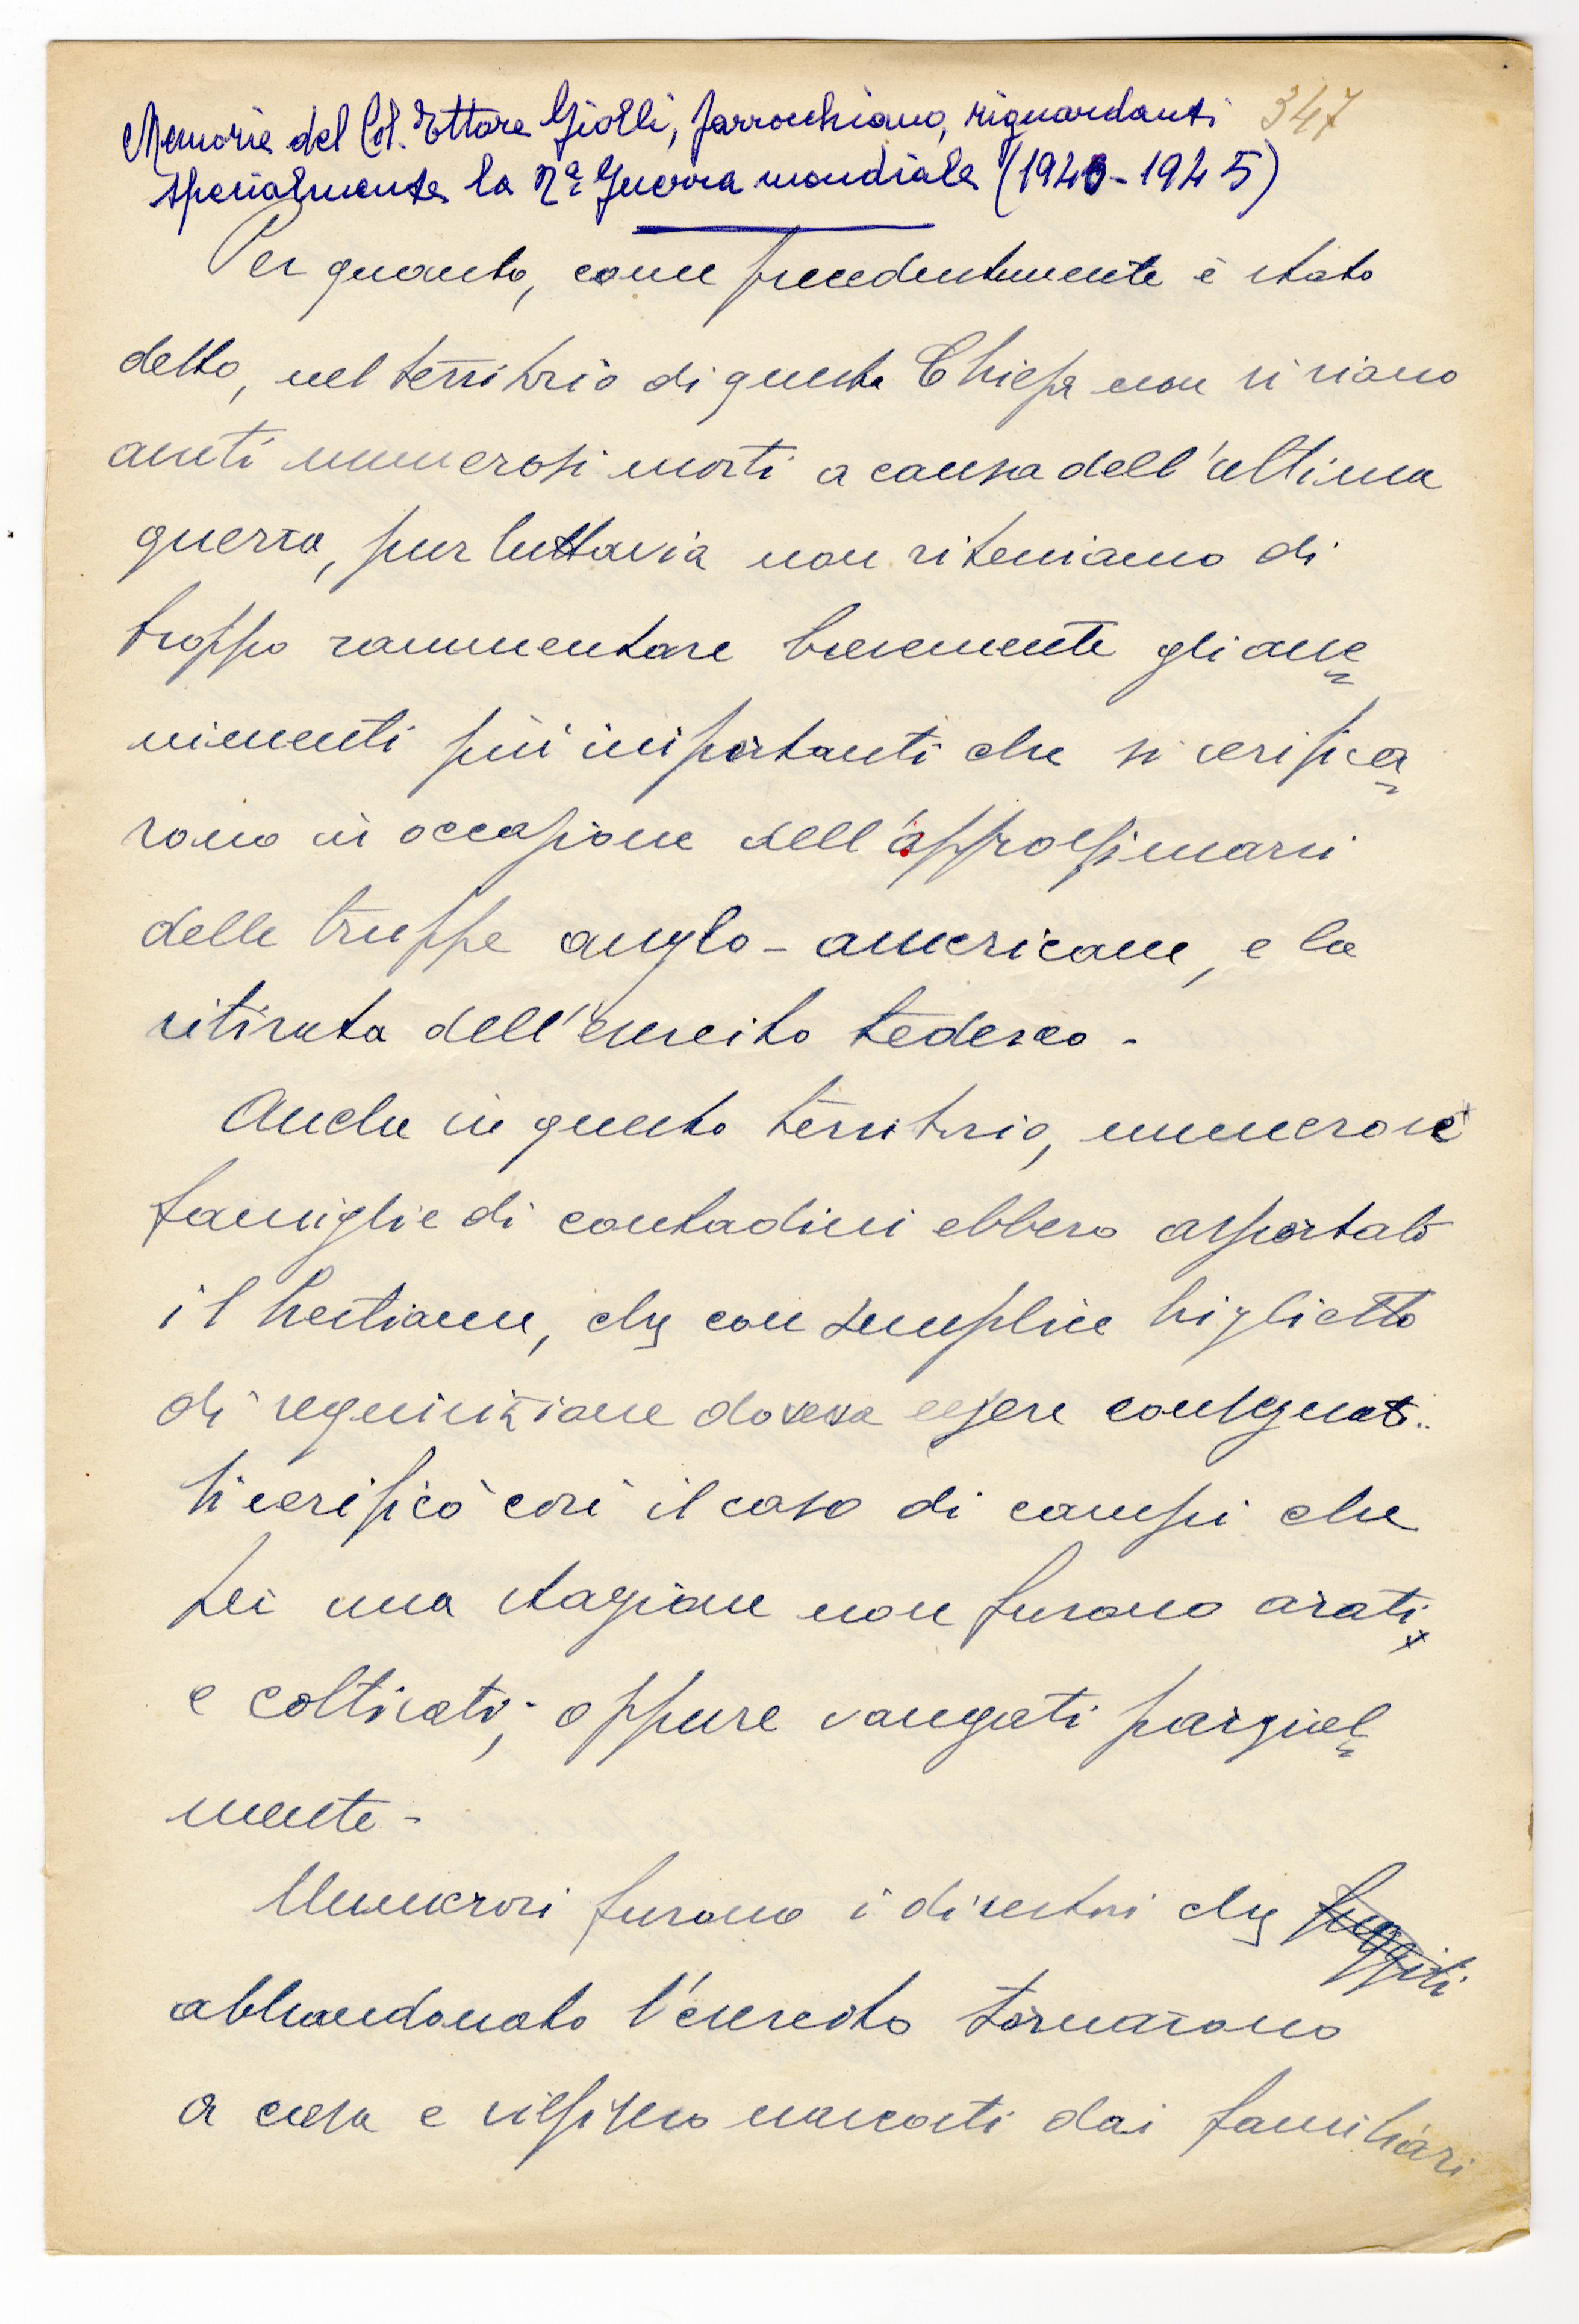 Memorie del Col. Ettore Giolli, parrocchiano, riguardanti 347
specialmente la 2ª Guerra mondiale (1940-1945)
Per quanto, come precedentemente è stato
detto, nel territorio di questa Chiesa non si siano
avuti numerosi morti a causa dell'ultima
guerra, pur tuttavia non riteniamo di
troppo rammentare brevemente gli avve
nimenti più importanti che si verifica
rono in occasione dell'approssimarsi
delle truppe anglo-americane, e la
ritirata dell'esercito tedesco -
Anche in questo territorio, numerose
famiglie di contadini ebbero asportato
il bestiame, che con semplice biglietto
di requisizione doveva essere consegnato.
Si verificò così il caso di campi che
per una stagione non furono arati
e coltivati; oppure vangati parzial
mente -
Numerosi furono i disertori che fuggiti
abbandonato l'esercito tornarono
a casa e vissero nascosti dai familiari